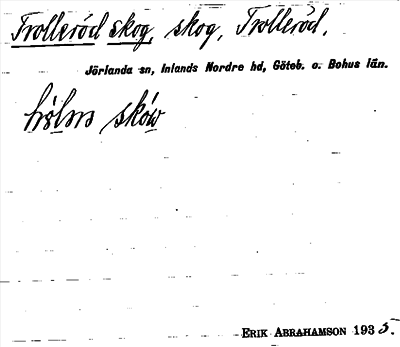 Trolleröd skog, skog, Trolleröd.
Jörlanda sn, Inlands Nordre hd, Göteb. o. Bohus län.
sków
ERIK ABRAHAMSON 1935.